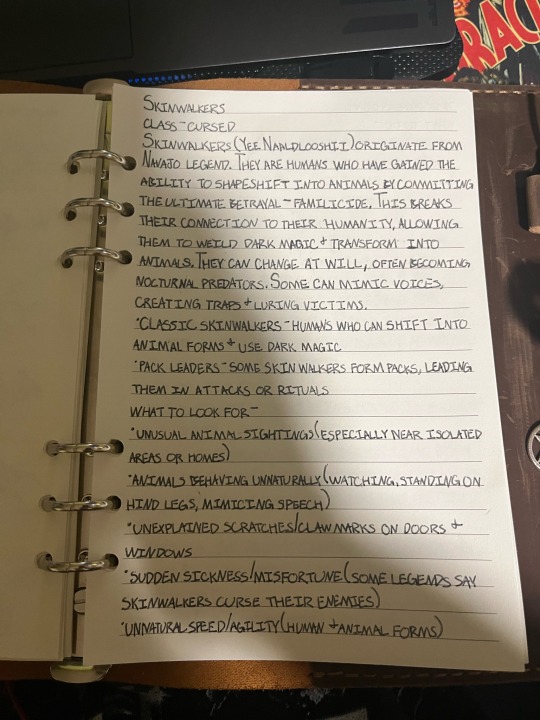 SKINWALKERS
CLASS-CURSED
SKINWALKERS (YEE NAALDLOOSHII) ORIGINATE FROM
NAVAJO LEGEND. THEY ARE HUMANS WHO HAVE GAINED THE
ABILITY TO SHAPESHIFT INTO ANIMALS BY COMMITTING
THE ULTIMATE BETRAYAL-FAMILICIDE. THIS BREAKS
THEIR CONNECTION TO THEIR HUMANITY, ALLOWING
THEM TO WEILD DARK MAGIC + TRANSFORM INTO
ANIMALS. THEY CAN CHANGE AT WILL, OFTEN BECOMING
NOCTURNAL PREDATORS. SOME CAN MIMIC VOICES,
CREATING TRAPS + LURING VICTIMS.
*CLASSIC SKINWALKERS-HUMANS WHO CAN SHIFT INTO
ANIMAL FORMS + USE DARK MAGIC
*PACK LEADERS-SOME SKIN WALKERS FORM PACKS, LEADING
THEM IN ATTACKS OR RITUALS
WHAT TO LOOK FOR-
*UNUSUAL ANIMAL SIGHTINGS (ESPECIALLY NEAR ISOLATED
AREAS OR HOMES)
*ANIMALS BEHAVING UNNATURALLY (WATCHING, STANDING ON
HIND LEGS, MIMICING SPEECH)
*UNEXPLAINED SCRATCHES/CLAW MARKS ON DOORS +
WINDOWS
*SUDDEN SICKNESS/MISFORTUNE (SOME LEGENDS SAY
SKINWALKERS CURSE THEIR ENEMIES)
*UNNATURAL SPEED/AGILITY (HUMAN + ANIMAL FORMS)